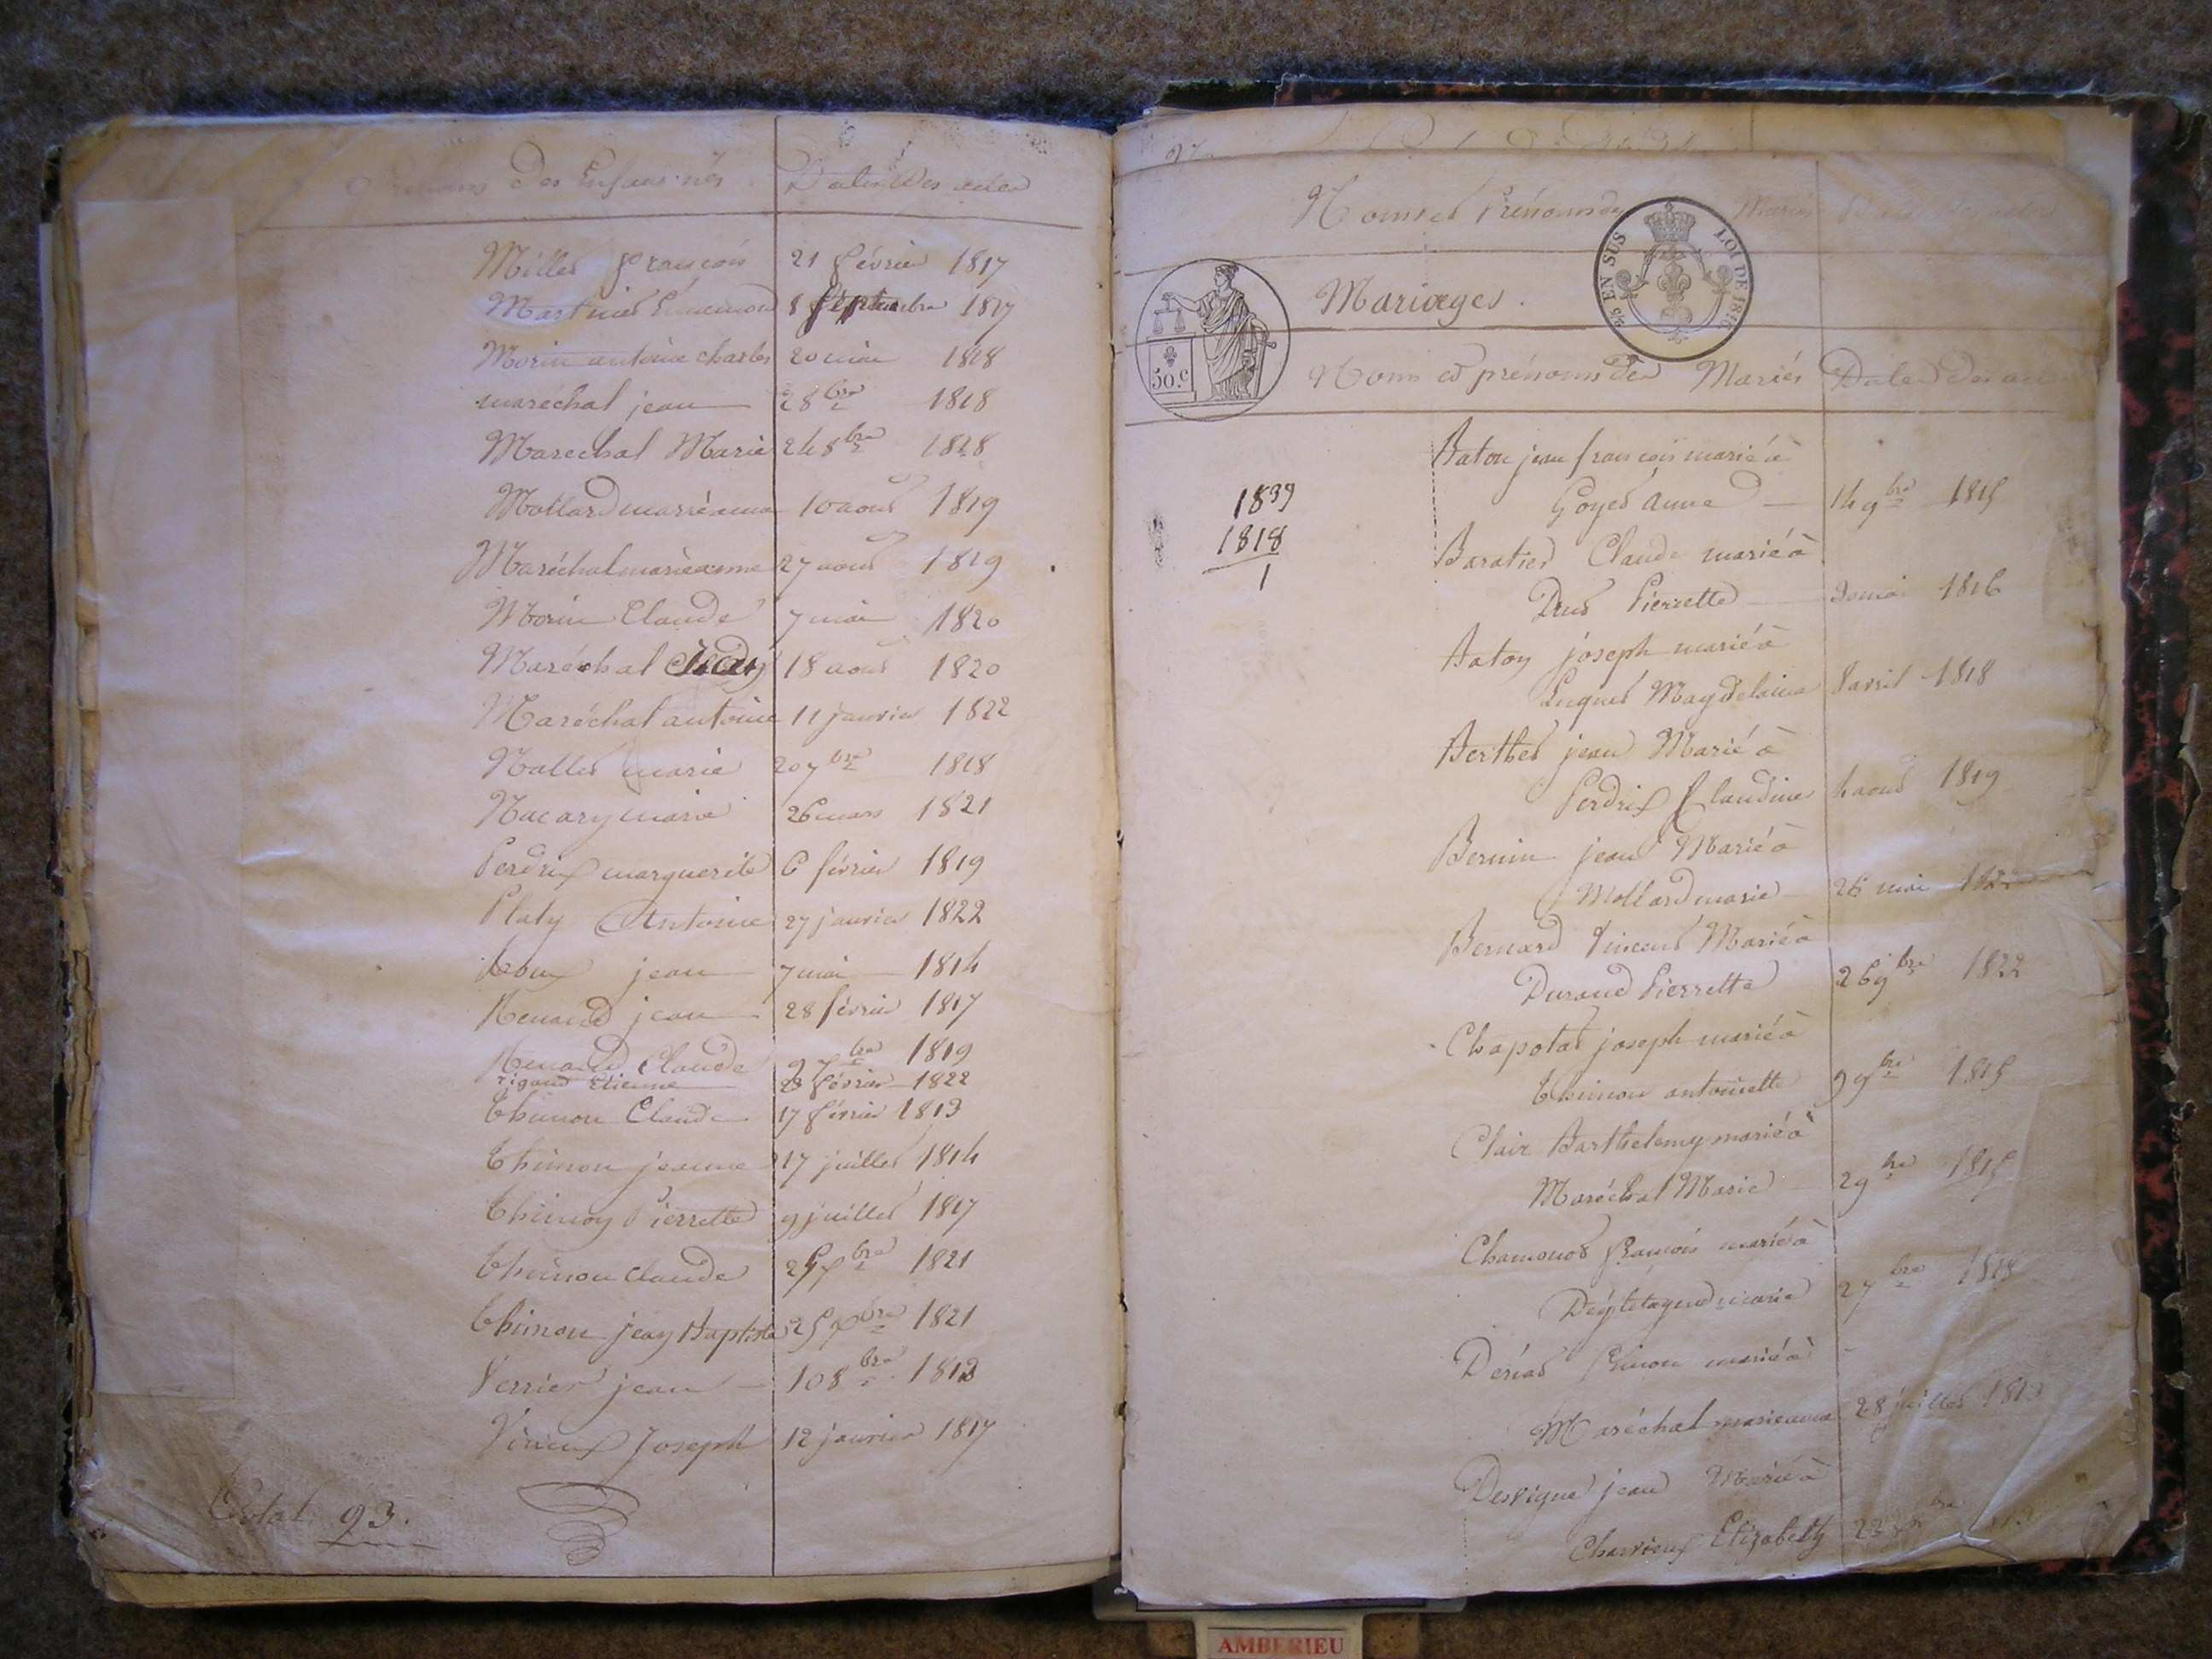 Prénoms des Enfans nés Dates des actes
Millet françois 21 février 1817
Martinet Ennemond 8 septembre 1817
Morin antoine charles 20 mai 1818
maréchal jean 28 bre 1818
Marechal Marie 24 8bre 1818
Mollard marieanne 10 aout 1819
Maréchal marieanne 27 aout 1819
Morin Claude 7 mai 1820
Maréchal 18 aout 1820
Maréchal antoine 11 janvier 1822
Nallet marie 20 7bre 1818
Nacary marie 26 mars 1821
Perdrix marguerite 6 février 1819
Platy Antoine 27 janvier 1822
Roux jean 7 mai 1814
Renaud jean 28 février 1817
Renaud Claude 9 7bre 1819
rigaud Etienne 28 février 1822
Thimon Claude 17 février 1813
Thimon jeanne 17 juillet 1814
Thimon Pierrette 9 juillet 1817
Thimon Claude 25 7bre 1821
Thimon jean Baptiste 25 7bre 1821
Verrier jean 10 8bre 1813
Vincent Joseph 12 janvier 1817
Total 93.
Noms et Prénoms des Mariés
EN SUS LOI DE 1816
50.c
Mariages.
Noms et prénoms des Mariés Dates des actes
1839
1818
1
Baton jean françois marié à
Goyet Anne 14 9bre 1815
Baratier Claude marié à
Drut Pierrette 20 mai 1816
Baton joseph marié à
Luquet Magdelaine 8 avril 1818
Berthet jean Marié à
Perdrix Claudine 4 aout 1819
Bernin jean Marié à
Mollard marie 26 mai 1822
Bernard Vincent Marié à
Durand Pierrette 26 9bre 1822
Chapotat joseph marié à
Thimon antoinette 9 9bre 1815
Clair Barthelemy marié à
Maréchal Marie 2 9bre 1815
Chamouod françois marié à
marie 2 7bre 1818
marié à
Maréchal marieanne 28 juillet 1813
Desvigne jean Marié à
Charvieux Elizabeth
AMBERIEU